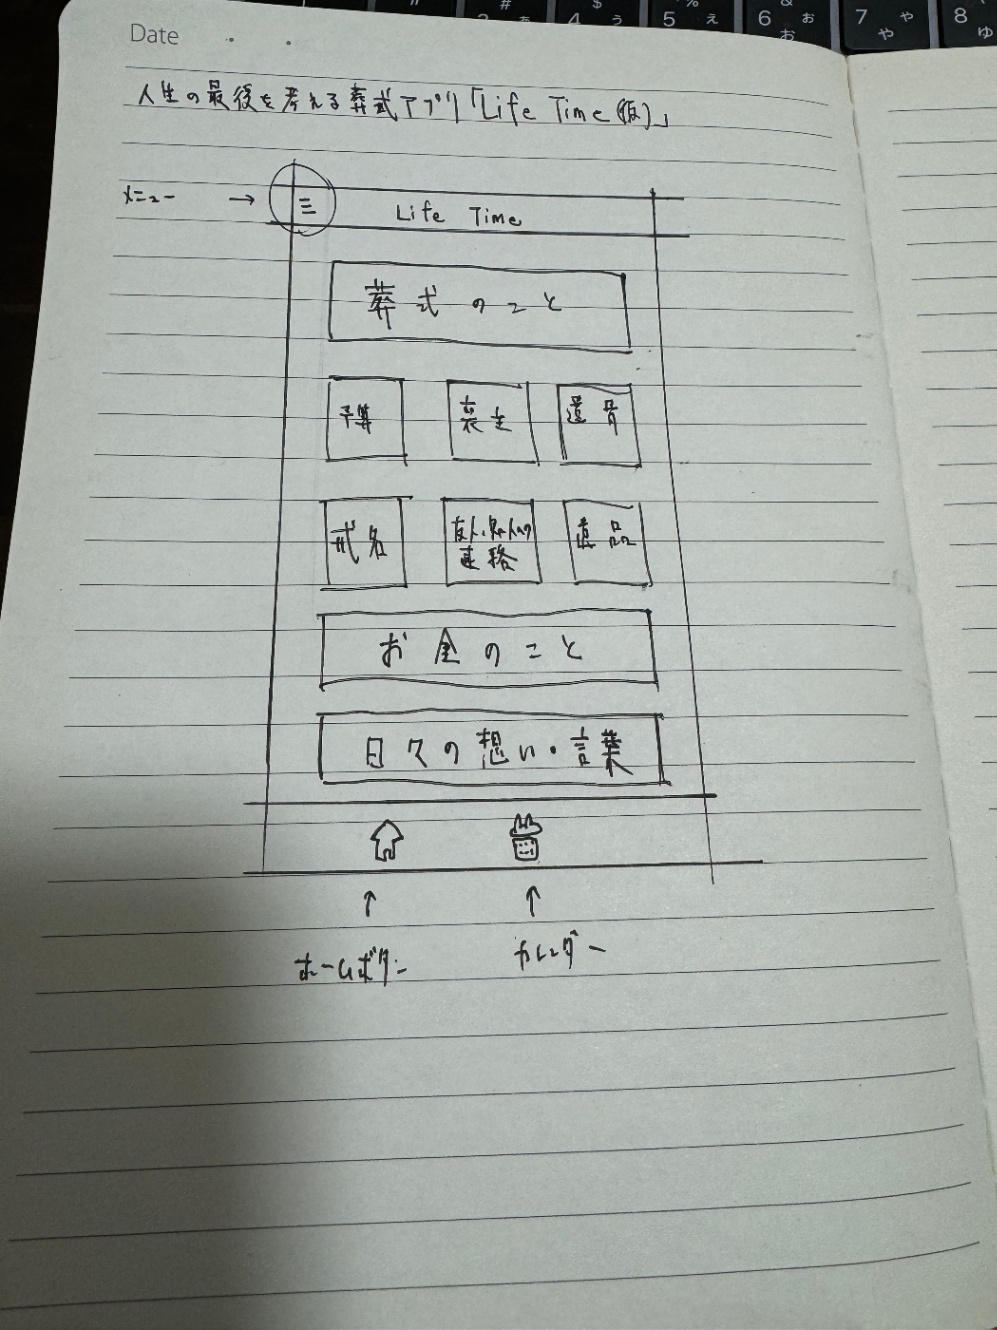 Date
人生の最後を考える葬式アプリ「Life Time(仮)」
メニュー →
Life Time
葬式のこと
予算 喪主 遺骨
戒名 友人・知人への連絡 遺品
お金のこと
日々の想い・言葉
↑ ↑
ホームボタン カレンダー
# & 
3 ぁ 4 $ ぅ 5 % ぇ 6 お ぉ 7 や ゃ 8 ゆ